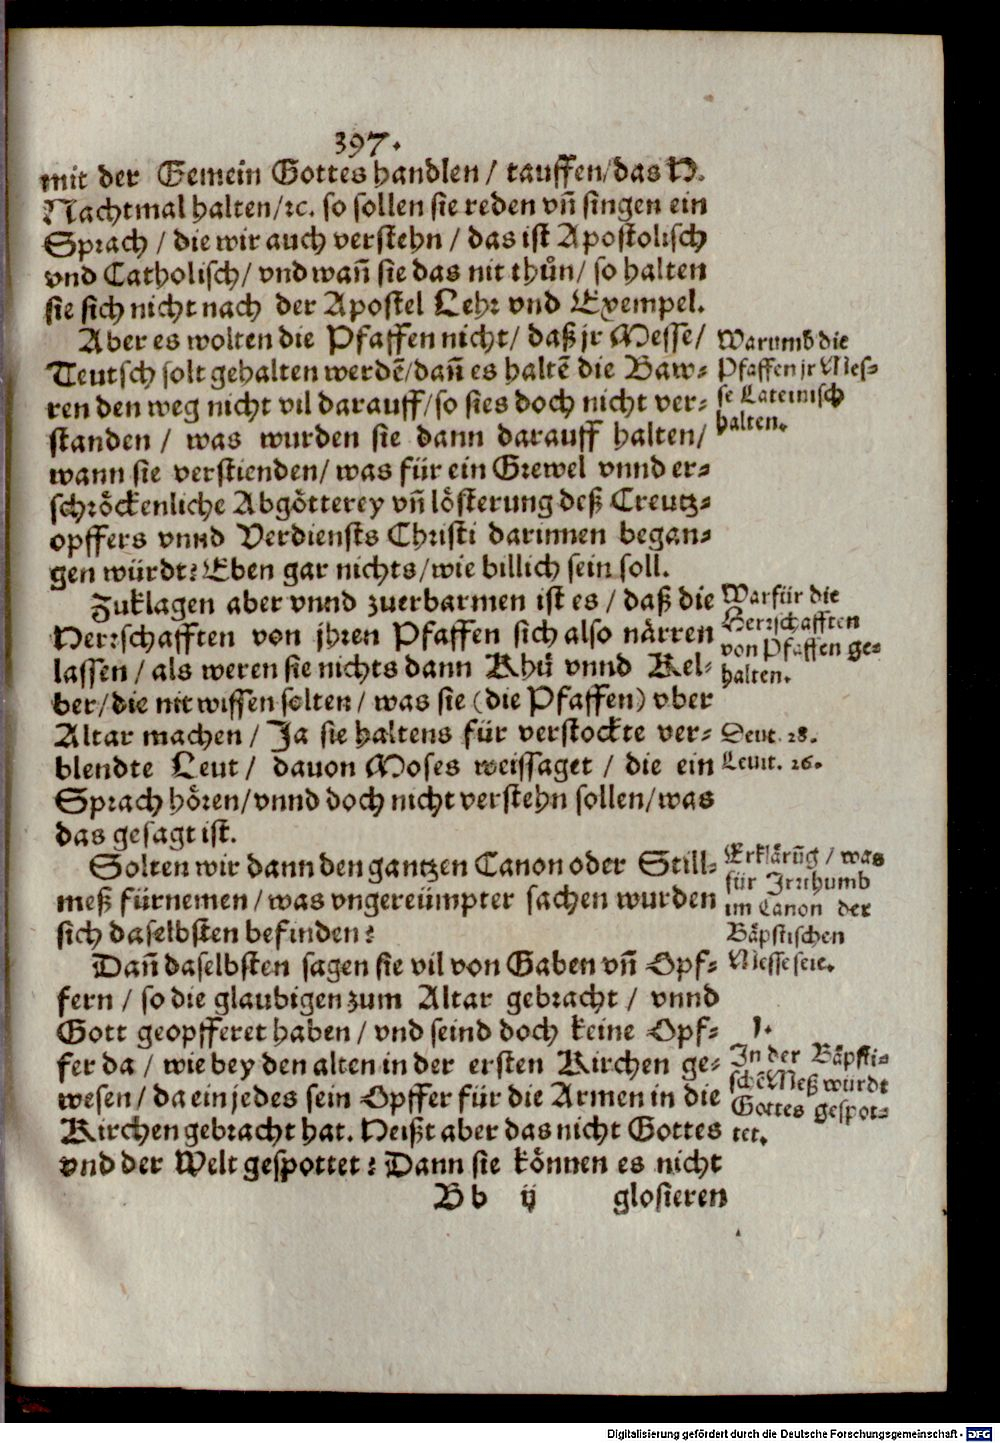 397.
mit der Gemein Gottes handlen / tauffen/das H.
Nachtmal halten/ꝛc. so sollen sie reden vñ singen ein
Sprach / die wir auch verstehn / das ist Apostolisch
vnd Catholisch/ vnd wañ sie das nit thůn/ so halten
sie sich nicht nach der Apostel Lehr vnd Exempel.
Aber es wolten die Pfaffen nicht/ daß jr Messe/
Teutsch solt gehalten werdẽ/dañ es haltẽ die Baw-
ren den weg nicht vil darauff/so sies doch nicht ver-
standen / was wurden sie dann darauff halten/
wann sie verstienden/ was für ein Grewel vnnd er-
schröckenliche Abgötterey vñ lösterung deß Creutz-
opffers vnnd Verdiensts Christi darinnen began-
gen würdt? Eben gar nichts/wie billich sein soll.
Warumb die
Pfaffen jr Mes-
se Lateinisch
halten.
Zuklagen aber vnnd zuerbarmen ist es / daß die
Herrschafften von jhren Pfaffen sich also närren
lassen / als weren sie nichts dann Khü vnnd Kel-
ber/die nit wissen solten/ was sie (die Pfaffen) vber
Altar machen/ Ja sie haltens für verstockte ver-
blendte Leut/ dauon Moses weissaget / die ein
Sprach hören/vnnd doch nicht verstehn sollen/was
das gesagt ist.
Warfür die
Herrschafften
von Pfaffen ge-
halten.
Deut. 28.
Leuit. 26.
Solten wir dann den gantzen Canon oder Still-
meß fürnemen/was vngereümpter sachen wurden
sich daselbsten befinden?
Erklärũg / was
für Irrthumb
im Canon der
Bäpstischen
Messe seie.
Dañ daselbsten sagen sie vil von Gaben vñ Opf-
fern / so die glaubigen zum Altar gebracht / vnnd
Gott geopfferet haben/ vnd seind doch keine Opf-
fer da / wie bey den alten in der ersten Kirchen ge-
wesen/ da ein jedes sein Opffer für die Armen in die
Kirchen gebracht hat. Heißt aber das nicht Gottes
vnd der Welt gespottet? Dann sie können es nicht
1.
In der Bäpsti-
schẽ Meß würdt
Gottes gespot-
tet.
B b ij glosieren
Digitalisierung gefördert durch die Deutsche Forschungsgemeinschaft - DFG